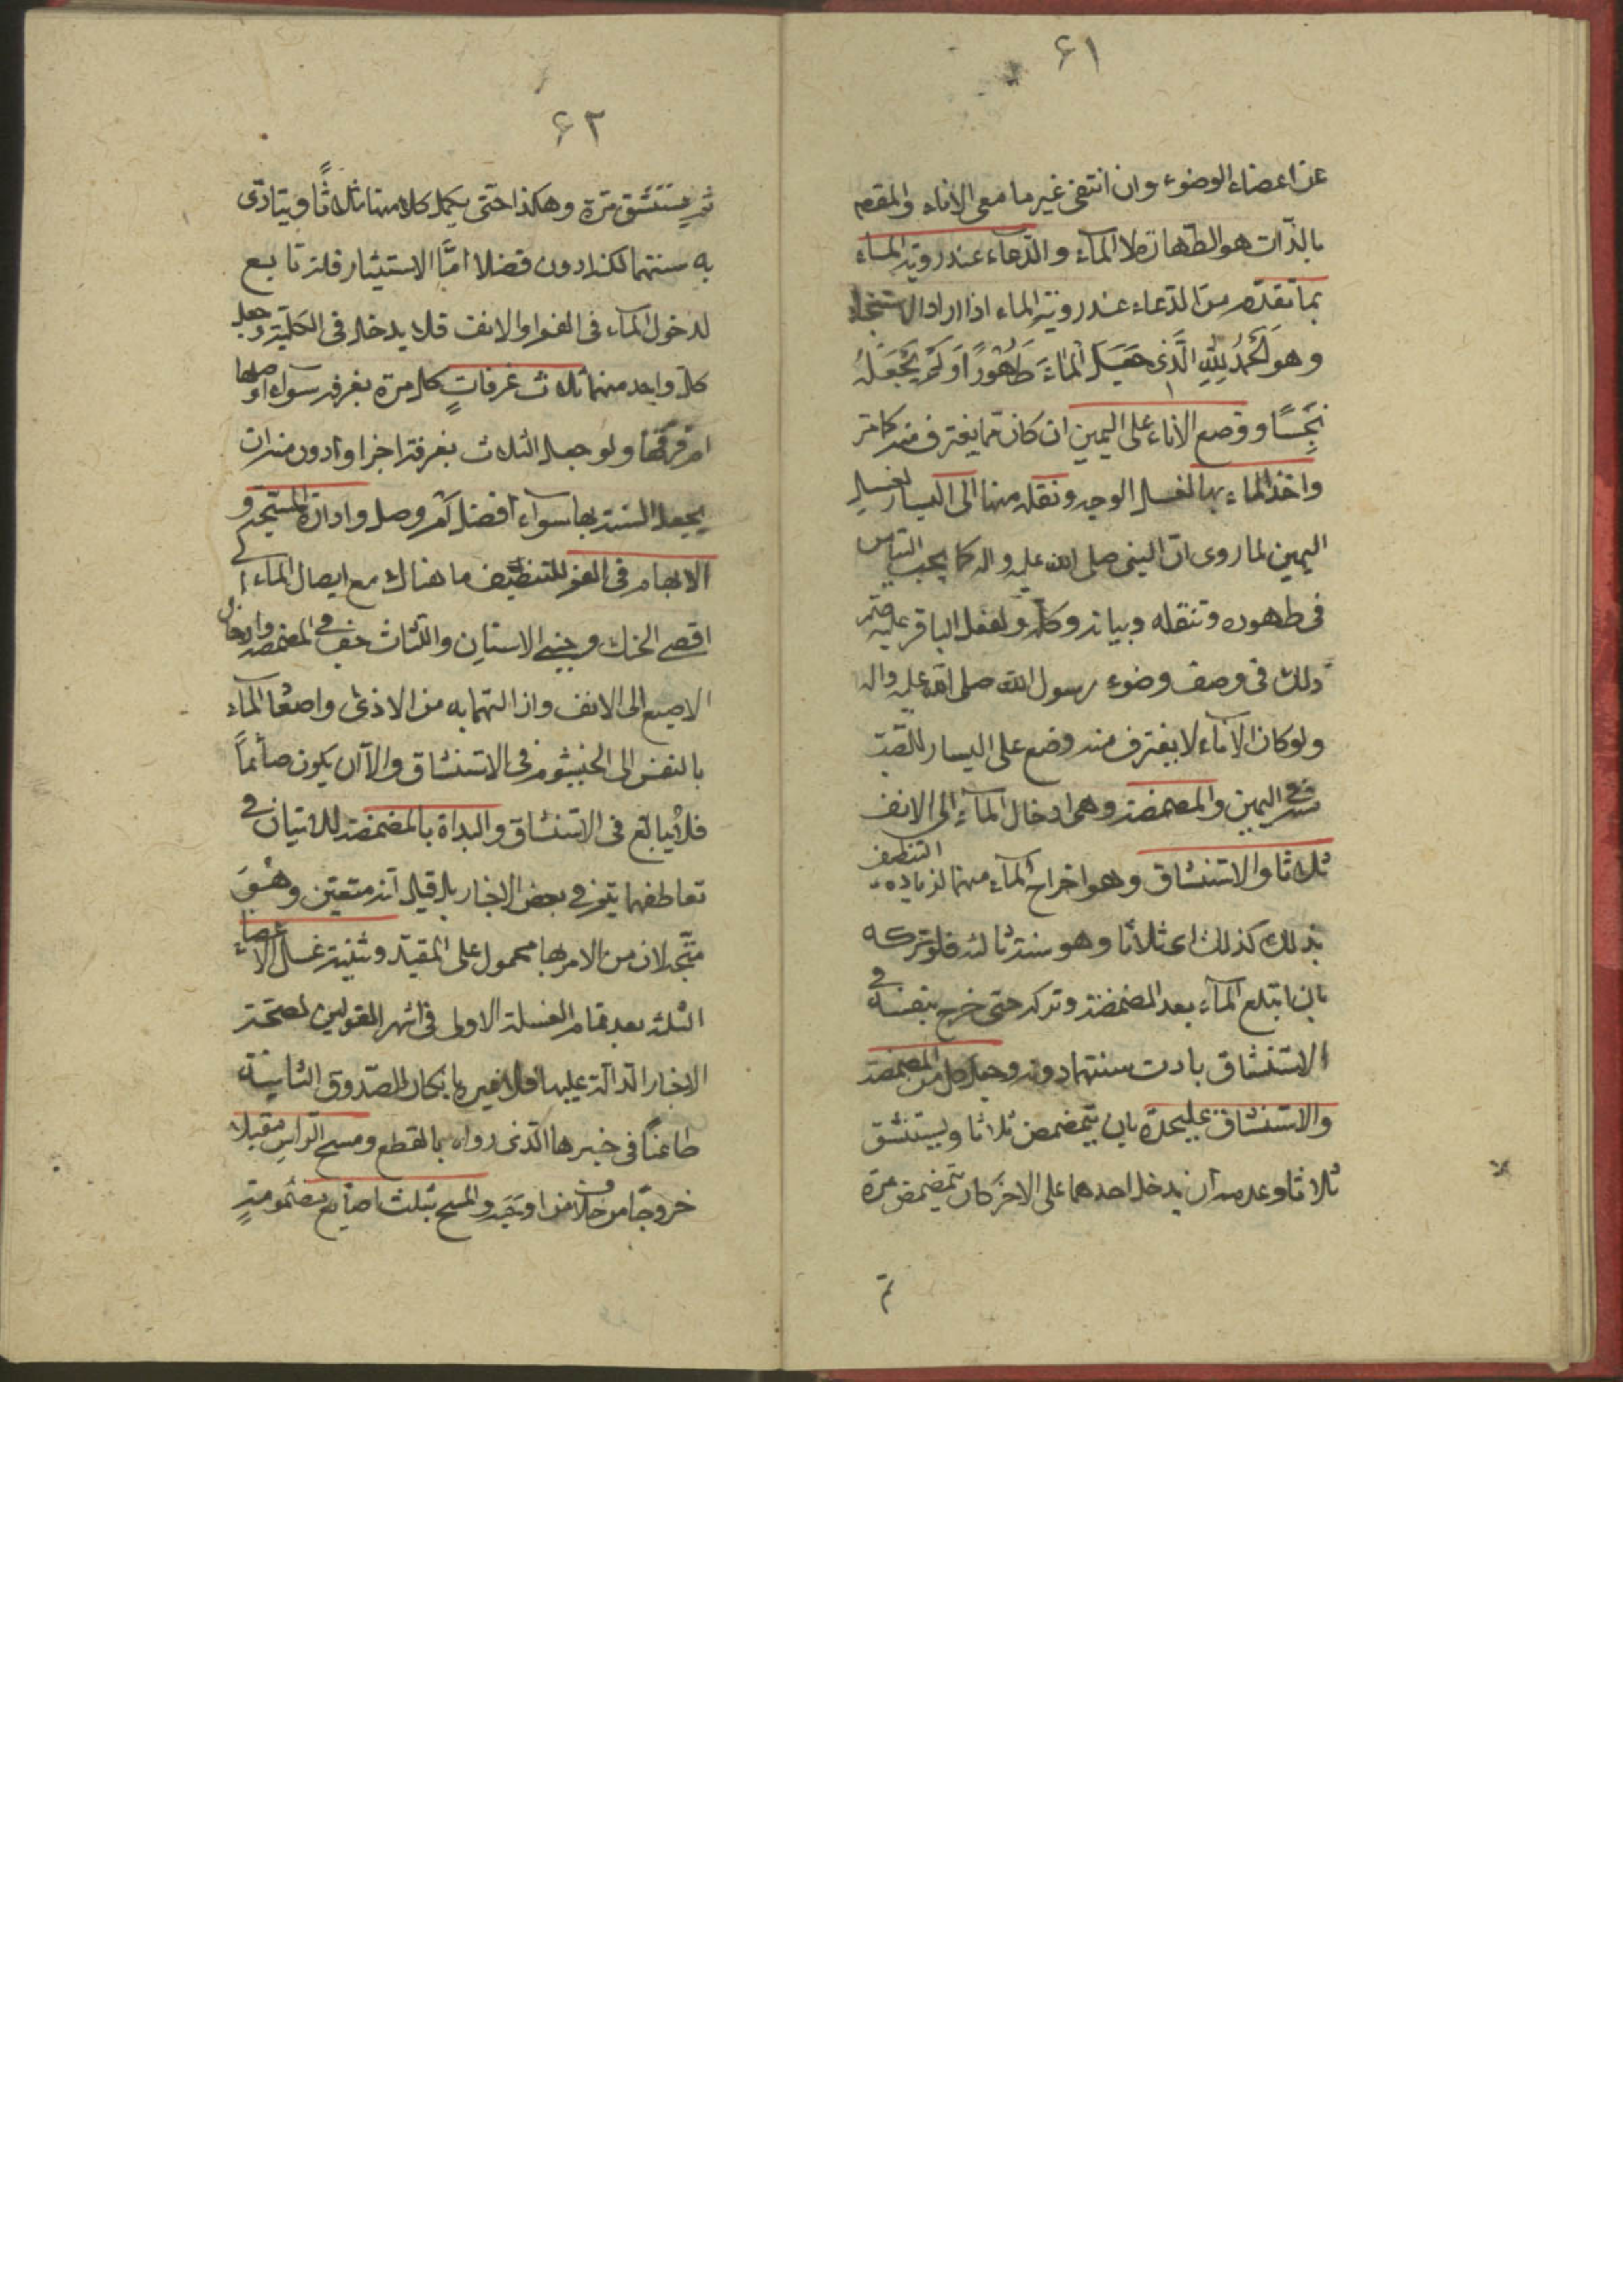 ۶۱
عن اعضاء الوضوء وان انتفى غير ما معى الاناء والمقصم
بالذات هو الطهارة لا المآء والدعاء عند روية المآء
بما تقدم من الدعاء عند روية الماء اذا اراد الاستنجاء
وهو اَلْحَمْدُ لِلّٰهِ الَّذى جَعَلَ الْمَاءَ طَهُورًا وَلَمْ يَجْعَلْهُ
نَجِسًا ووضع الاناء على اليمين ان كان مما يغترف منه كما مر
واخذ الماء بها لغسل الوجه ونقله منها الى اليسار لغسل
اليمين لما روى ان النبى صلى الله عليه واله كا يحب التيامن
فى طهوره وتنقله وبيانه وكله ولفعل الباقر عليه
ذلك فى وصف وضوء رسول الله صلى الله عليه واله
ولو كان الاناء لا يغترف منه وضع على اليسار للصب
منه فى اليمين والمضمضة وهى ادخال المآء الى الانف
ثلاثا والاستنشاق وهو اخراج المآء منهما لزيادة التنظيف
بذلك كذلك اى ثلاثا وهو سنة ثالثه فلو تركه
بان ابتلع المآء بعد المضمضة وتركه حتى خرج بنفسه فى
الاستنشاق تادت سنتهما دونه وجعل كل من المضمضة
والاستنشاق عليحدة بان يتمضمض ثلاثا ويستنشق
ثلاثا وعدمه ان يدخل احدهما على الاخر كان يتمضمض مرة
ثم
۶۲
ثم يستنشق مرة وهكذا حتى يكمل كلا منها ثلاثًا ويتادى
به سنتهما لكنه ادون فضلا امّا الاستنثار فلم تابع
لدخول المآء فى الفم او الانف فلا يدخل فى الكلية وجعل
كل واحد منهما بثلاث غرفات كل مرة بغرفة سواء وصلها
ام فرقها ولو جعل الثلاث بغرفة اجزا وادون منه ان
يجعل الستة بها سواء افضل ثم وصل وادارة المسبحة و
الابهام فى الفم لتنظيف ما هناك مع ايصال الماء الى
اقصى الحنك وجنبى الاسنان واللثاث فى المضمضة وادخال
الاصبع الى الانف وازالة ما به من الاذى واصعا المآء
بالنفس الى الخيشوم فى الاستنشاق والا ان يكون صائماً
فلا يبالغ فى الاستنشاق والبداة بالمضمضة للاتيان فى
تعاطفهما بثم فى بعض الاخبار بل قيل انه متعين وهو
متجه لان من الامر بها محمول على المقيد وتثنية غسل الاعضاء
الثلثة بعد تمام الغسلة الاولى فى اشهر القولين لصحة
الاخبار الدالة عليها فلا عبرة بانكار الصدوق الثانية
طاعناً فى خبرها الذى رواه بالقطع ومسح الراس مقبلا
خروجًا من خلاف من اوجبه والمسح بثلث اصابع مضمومة